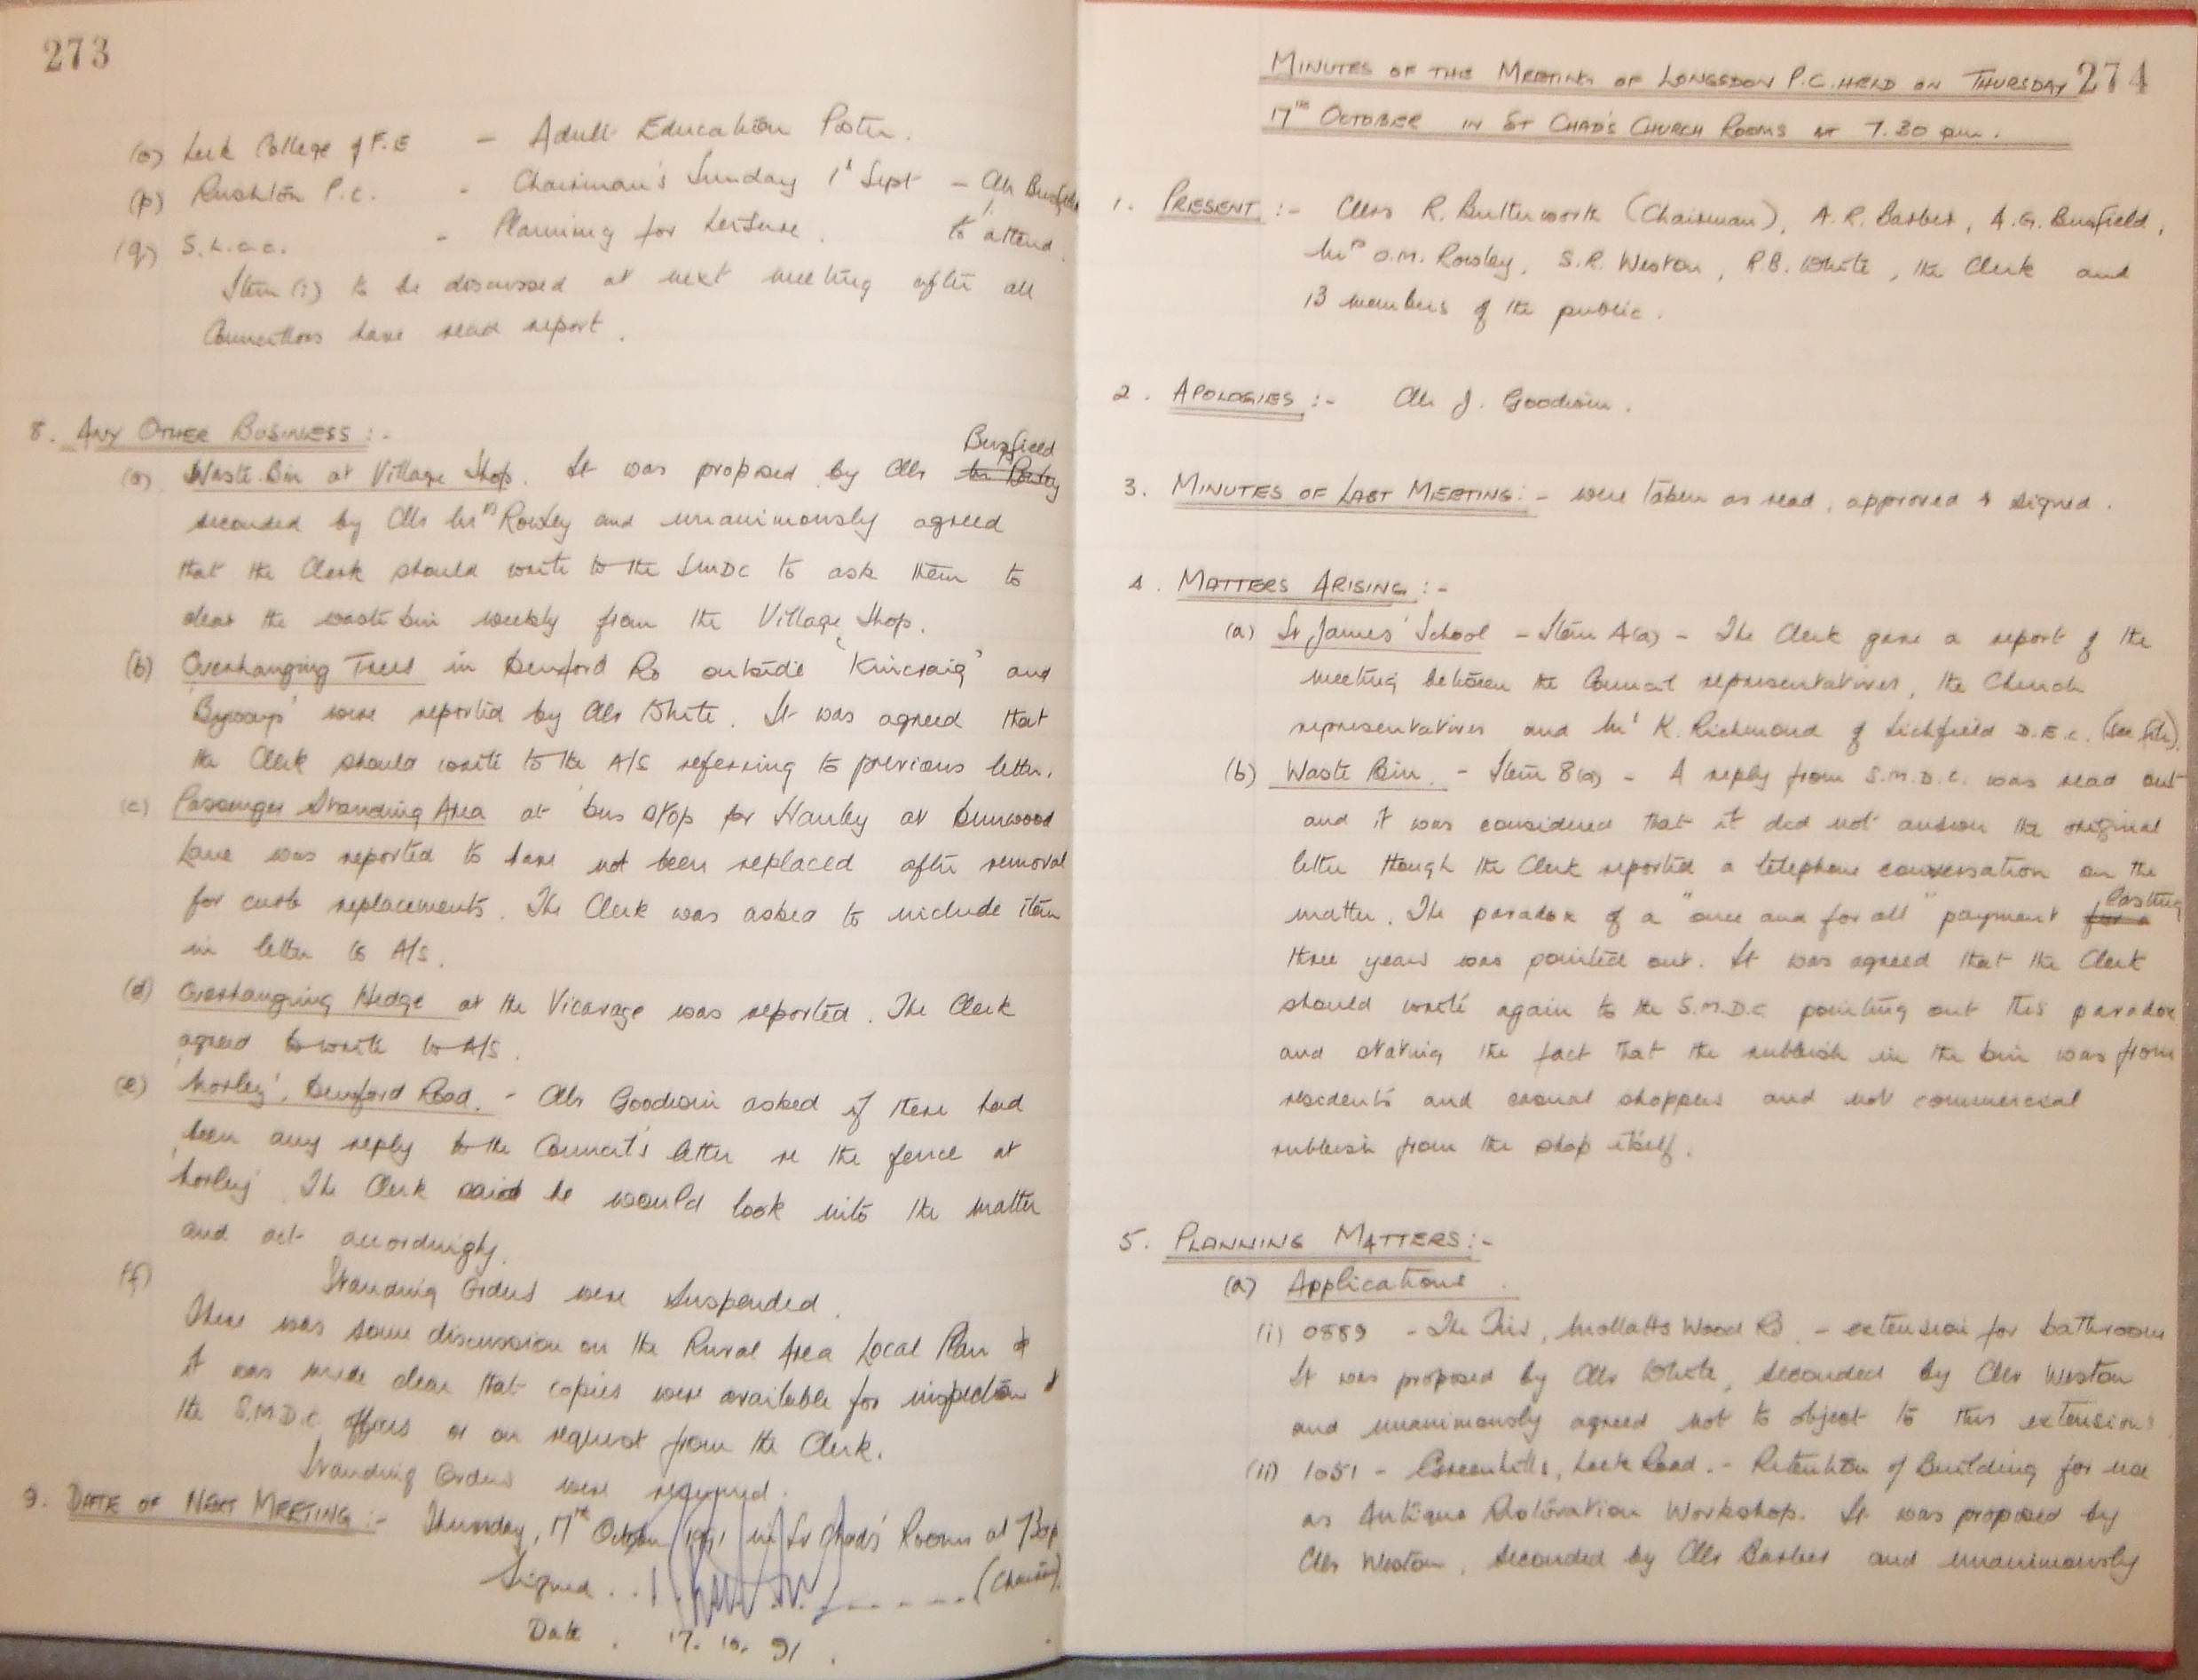 273
(o) Leek College of F.E - Adult Education Poster.
(p) Rushton P.C. - Chairman's Sunday 1st Sept - Cllr Busfield
(q) S.L.C.C. - Planning for Leisure. to attend.
Item (i) to be discussed at next meeting after all
Councillors have read report.
8. ANY OTHER BUSINESS :-
Busfield
(a) Waste Bin at Village Shop. It was proposed by Cllr Mrs Rowley
seconded by Cllr Mrs Rowley and unanimously agreed
that the Clerk should write to the SMDC to ask them to
clear the waste bin weekly from the Village Shop.
(b) Overhanging Trees in Denford Rd outside 'Kincraig' and
'Byways' were reported by Cllr White. It was agreed that
the Clerk should write to the A/S referring to previous letter.
(c) Passenger Standing Area at bus stop for Hanley at Dunwood
Lane was reported to have not been replaced after removal
for curb replacements. The Clerk was asked to include item
in letter to A/S.
(d) Overhanging Hedge at the Vicarage was reported. The Clerk
agreed to write to A/S.
(e) 'Morley', Denford Road. - Cllr Goodwin asked if there had
been any reply to the Council's letter re the fence at
'Morley'. The Clerk said he would look into the matter
and act accordingly.
(f) Standing Orders were suspended.
There was some discussion on the Rural Area Local Plan &
it was made clear that copies were available for inspection at
the S.M.D.C. offices or on request from the Clerk.
Standing Orders were resumed.
9. DATE OF NEXT MEETING :- Thursday, 17th October 1991 in St Chad's Rooms at 7.30pm
Signed . . . . . . . . (Chairman)
Date . 17. 10. 91 .
274
MINUTES OF THE MEETING OF LONGSDON P.C. HELD ON THURSDAY
17TH OCTOBER IN ST CHAD'S CHURCH ROOMS AT 7.30 pm.
1. PRESENT :- Cllrs R. Butterworth (Chairman), A.R. Barber, A.G. Busfield,
Mrs O.M. Rowley, S.R. Weston, P.B. White, the Clerk and
13 members of the public.
2. APOLOGIES :- Cllr J. Goodwin.
3. MINUTES OF LAST MEETING :- were taken as read, approved & signed.
4. MATTERS ARISING :-
(a) St James' School - Item 4(a) - The Clerk gave a report of the
meeting between the Council representatives, the Church
representatives and Mr K. Richmond of Lichfield D.E.C. (see file).
(b) Waste Bin. - Item 8(a) - A reply from S.M.D.C. was read out
and it was considered that it did not answer the original
letter though the Clerk reported a telephone conversation on the
lasting
matter. The paradox of a "once and for all" payment for a
three years was pointed out. It was agreed that the Clerk
should write again to the S.M.D.C pointing out this paradox
and stating the fact that the rubbish in the bin was from
residents and casual shoppers and not commercial
rubbish from the shop itself.
5. PLANNING MATTERS :-
(a) Applications.
(i) 0889 - The Inis, Mollatts Wood Rd. - extension for bathroom
It was proposed by Cllr White, seconded by Cllr Weston
and unanimously agreed not to object to this extension.
(ii) 1051 - Greenhills, Leek Road. - Retention of Building for use
as Antique Restoration Workshop. It was proposed by
Cllr Weston, seconded by Cllr Barber and unanimously